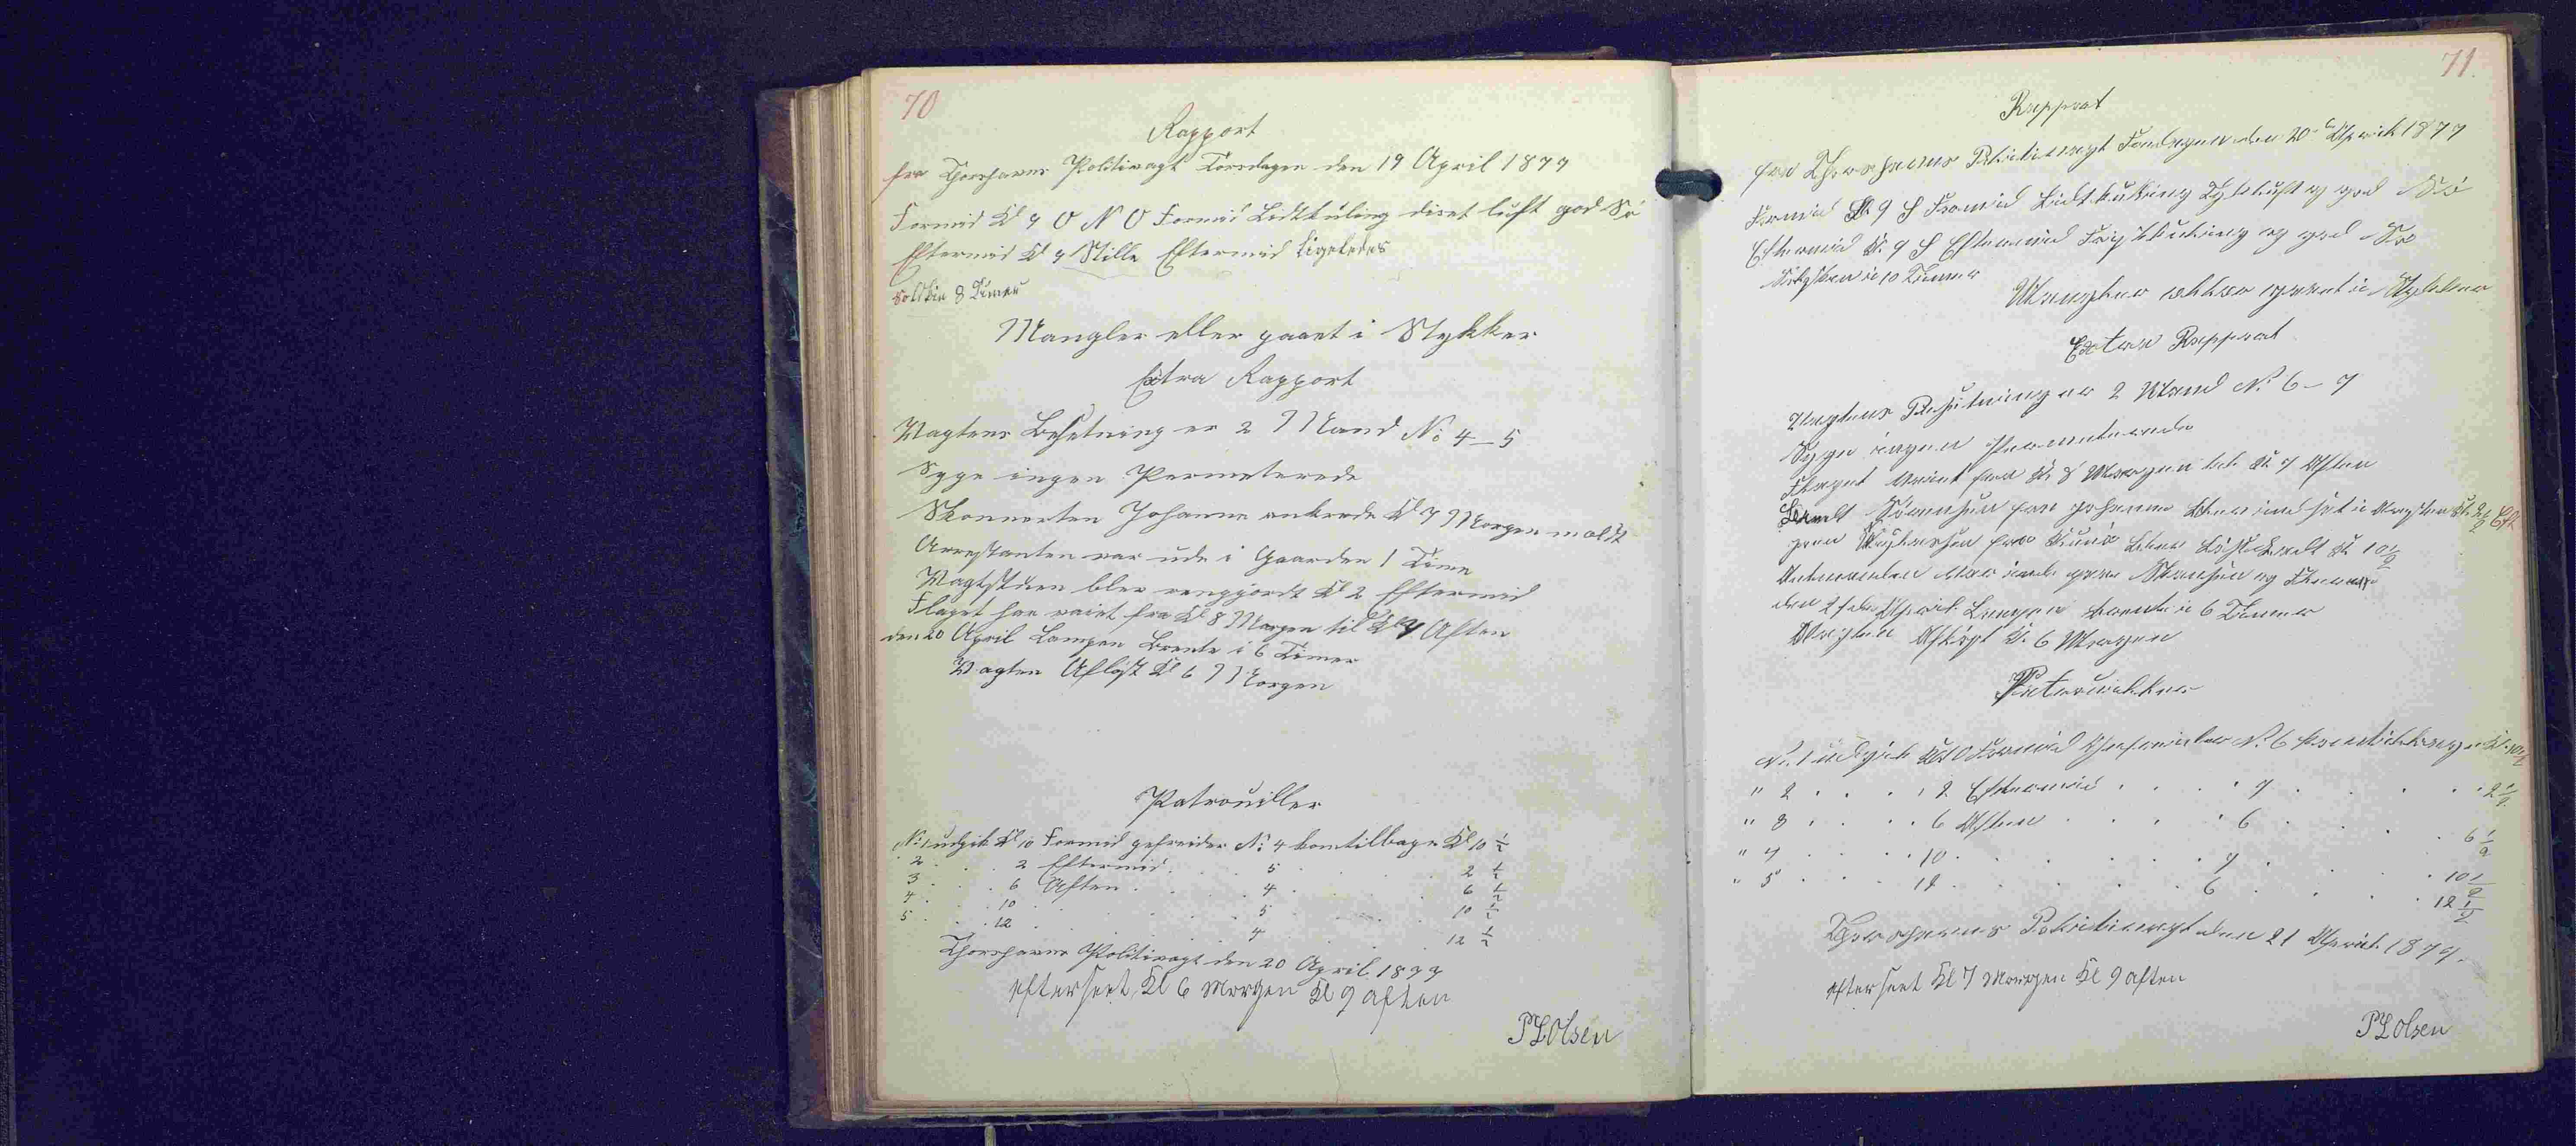 70
Rapport
fra Thorshavns Politivagt Torsdagen den 19 April 1877
Formid Kl 9 O N O Formid Lidtkuling diset luft god Sö
Eftermid Kl 9 Stille Eftermid Ligeledes
Solskin 8 Timer
Mangler eller gaaet i Stykker
Extra Rapport
Vagtens Besetning er 2 Mand No 4–5
Syge ingen Permeterede
Skonnerten Johanne ankrede Kl 7 Morgen
Arrestanten var ude i Gaarden 1 Time
Vagtstuen blev rengjordt Kl 2 Eftermid
Flaget har vaiet fra Kl 8 Morgen til Kl 7 Aften
den 20 April Lampen Brente i 6 Timer
Vagten Aflöst Kl 6 Morgen
Patrouiller
No 1 udgik Kl 10 Formid gefreider No 4 kom tilbage Kl 10 ½
2 . . . 2 Eftermid . . 5 . . . 2 ½
3 . . . 6 Aften . . 4 . . . 6 ½
4 . . . 10 . . . 5 . . . 10 ½
5 . . . 12 . . . 4 . . . 12 ½
Thorshavns Politivagt den 20 April 1877
efterseet Kl 6 Morgen Kl 9 aften
P L Olsen
71.
Rapport
fra Thorshavns Politivagt Fredagen den 20 April 1877
Formid Kl 9 S Formid Lidtkuling Tyk luft og god Sö
Eftermid Kl 9 S Eftermid Frisk kuling og god Sö
i 10 Timer
Mangler eller gaaet i Stykker
Extra Rapport
Vagtens Besetning er 2 Mand No 6–7
Syge ingen Permeterede
Flaget vaiet fra Kl 8 Morgen til Kl 7 Aften
Sörensen fra Johanne blev ind sat i Aresten Kl 2½ Eft
fra blev Kl 10½
Amtmanden var inde paa Skansen og
den 21 de April Lampen brente i 6 Timer
Vagten Aflöst Kl 6 Morgen
Patrouiller
No 1 udgik Kl 10 Formid Gefreider No 6 kom tilbage Kl 10½
" 2 . . . . 2 Eftermid . . . 7 . . . 2½
" 3 . . . . 6 Aften . . . 6 . . . 6½
" 4 . . . . 10 . . . 7 . . . 10½
" 5 . . . . 12 . . . 6 . . . 12½
Thorshavns Politivagt den 21 April 1877.
efterseet Kl 7 Morgen Kl 9 aften
P L Olsen